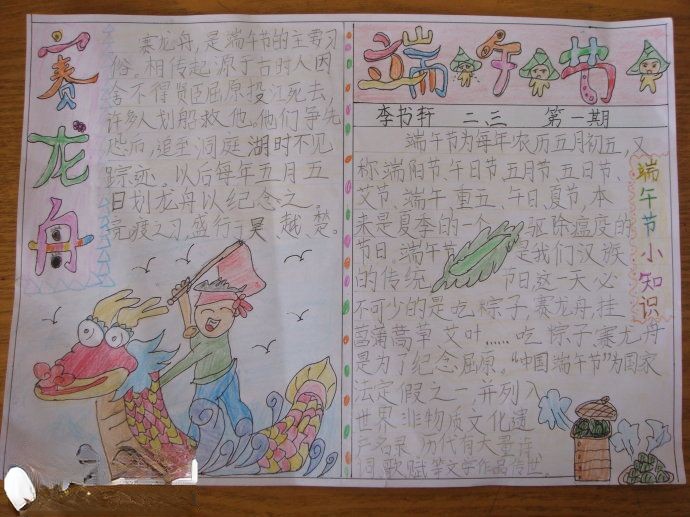 赛龙舟
赛龙舟,是端午节的主要习
俗。相传起源于古时人因
舍不得贤臣屈原投江死去,
许多人划船救他。他们争先
恐后,追至洞庭湖时不见
踪迹。以后每年五月五
日划龙舟以纪念之。
竞渡之习,盛行于吴、越、楚。
端午节
李书轩 二、三 第一期
端午节为每年农历五月初五,又
称端阳节、午日节、五月节、五日节、
艾节、端午、重五、午日、夏节,本
来是夏季的一个 驱除瘟疫的
节日,端午节 是我们汉族
的传统 节日,这一天必
不可少的是吃粽子,赛龙舟,挂
菖蒲蒿草艾叶……吃粽子赛龙舟
是为了纪念屈原。“中国端午节”为国家
法定假之一并列入
世界非物质文化遗
名录 历代有大量诗
词歌赋等文学作品传世。
端午节小知识